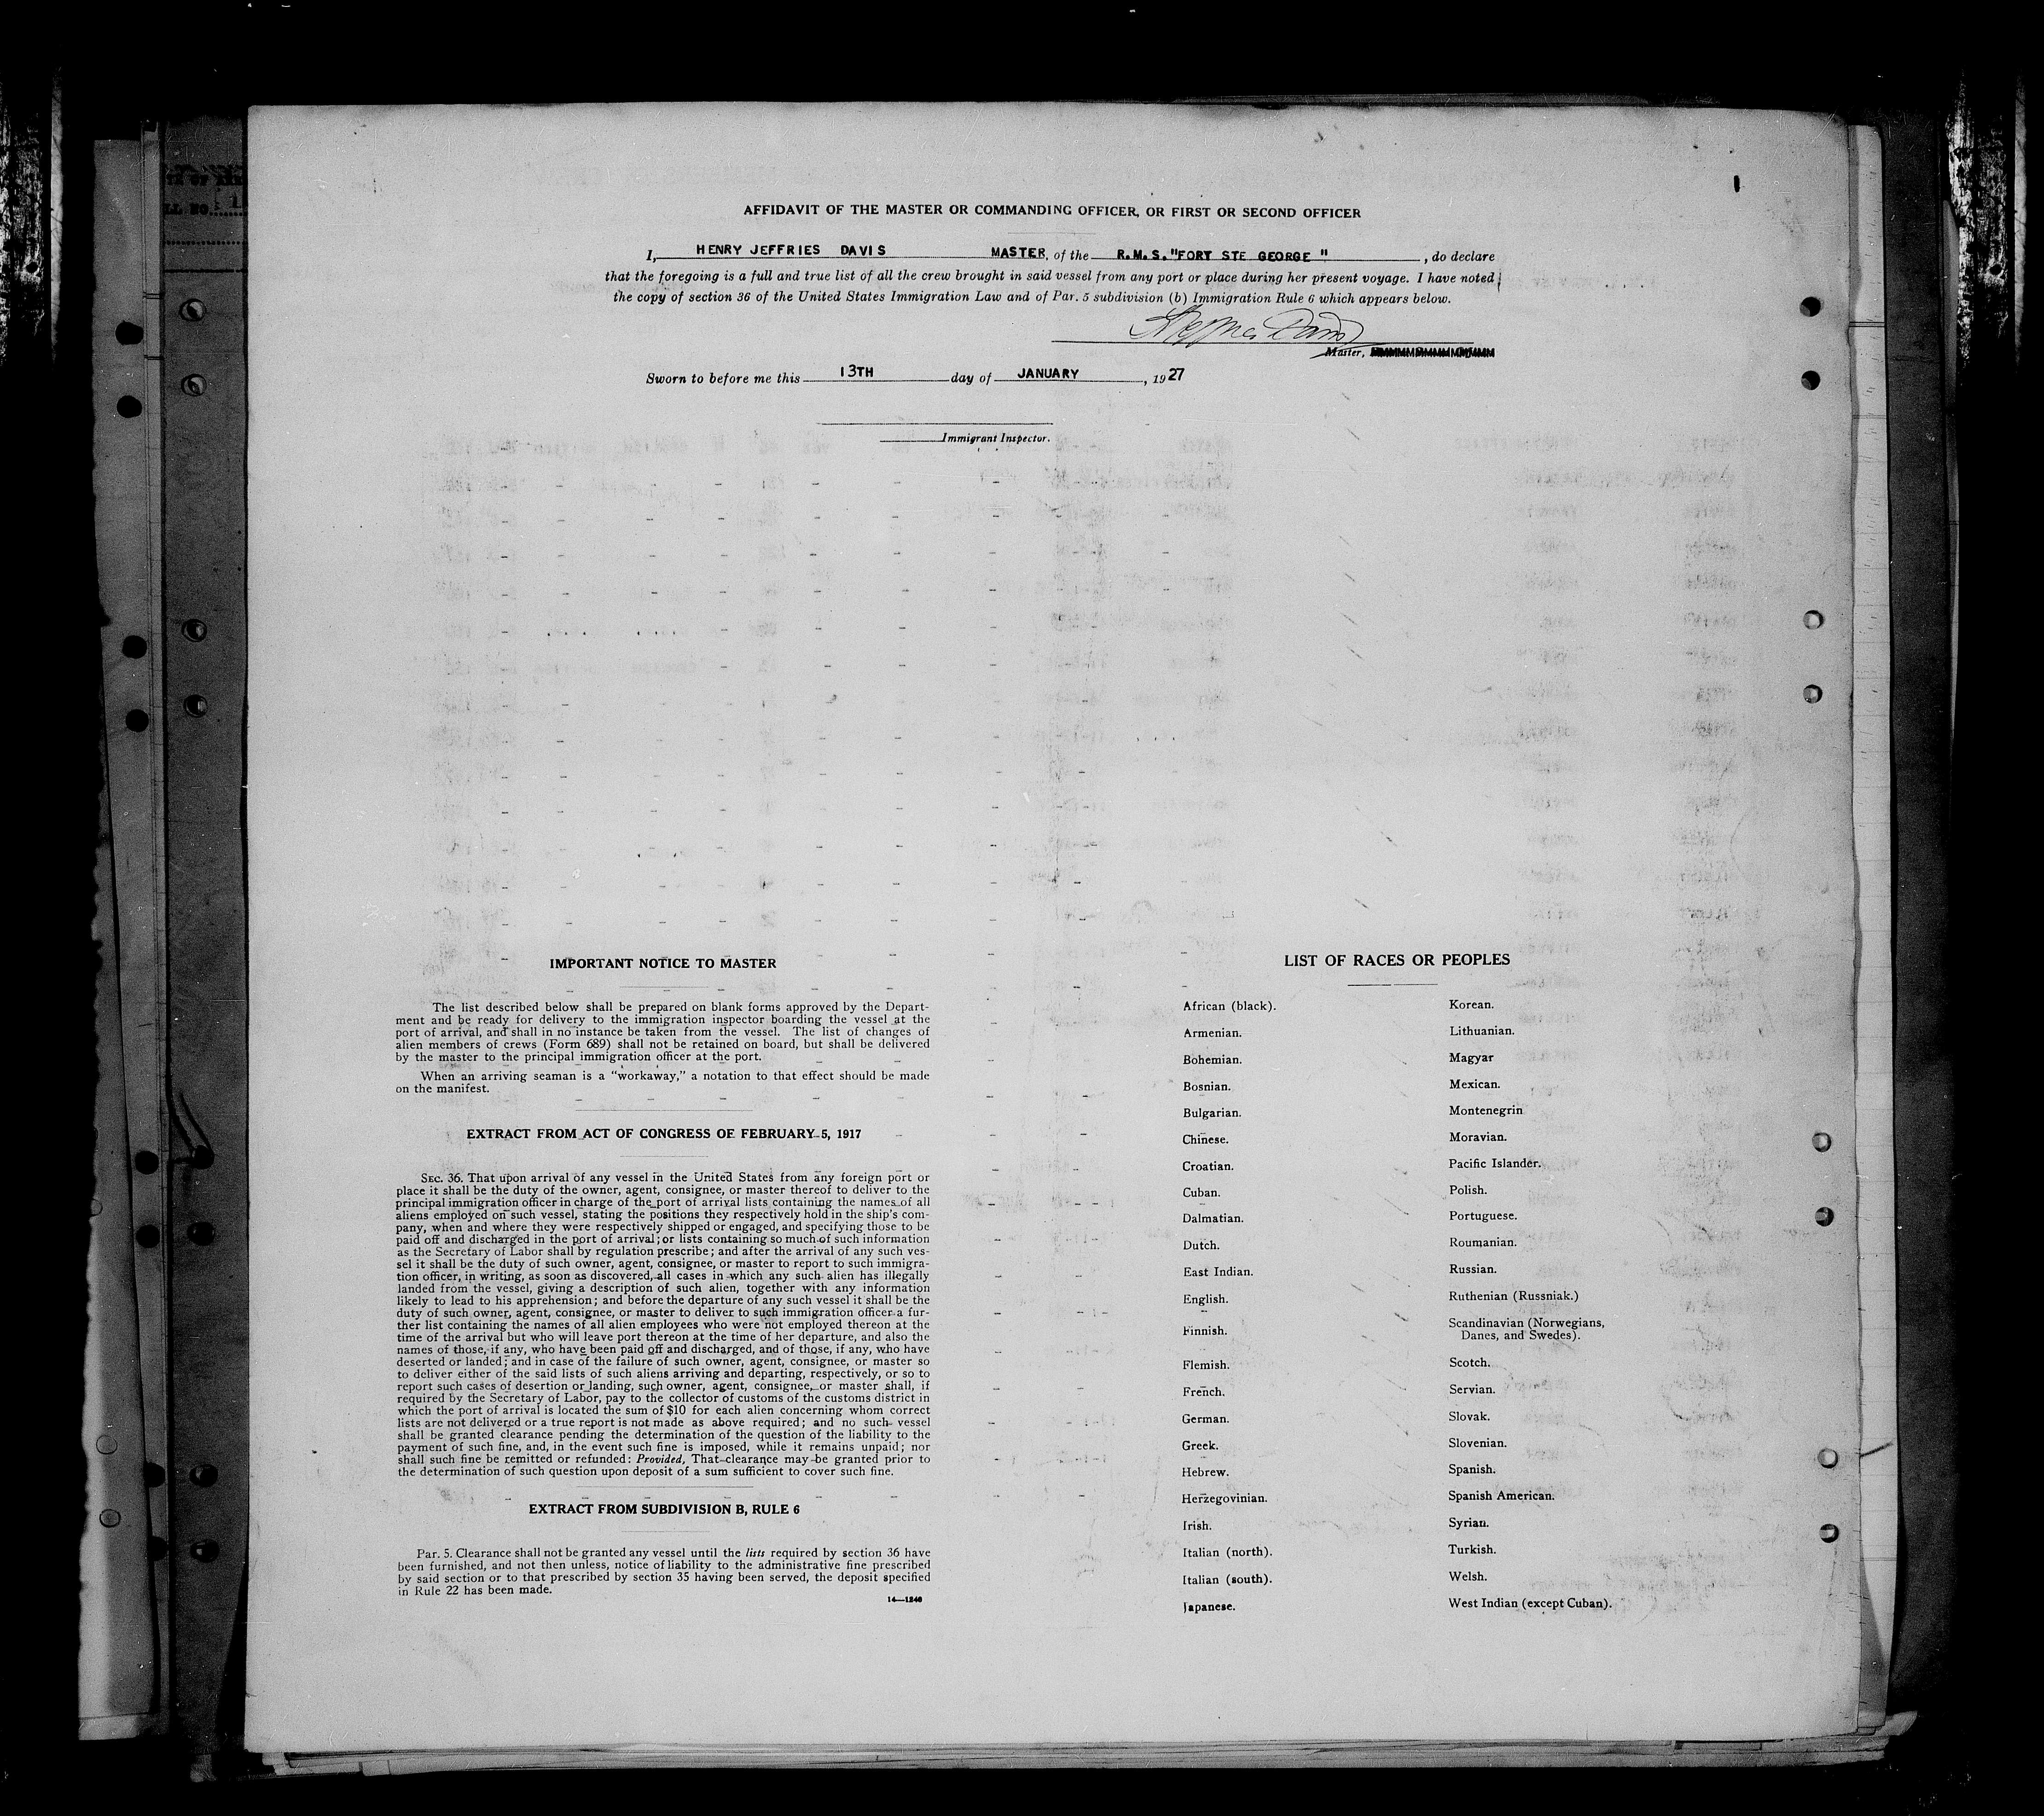 AFFIDAVIT OF THE MASTER OR COMMANDING OFFICER, OR FIRST OR SECOND OFFICER
I, HENRY JEFFRIES DAVIS MASTER, of the R.M.S. "FORT STE GEORGE", do declare
that the foregoing is a full and true list of all the crew brought in said vessel from any port or place during her present voyage. I have noted
the copy of section 36 of the United States Immigration Law and of Par. 5 subdivision (b) Immigration Rule 6 which appears below.
Master,
Sworn to before me this 13TH day of JANUARY, 1927
Immigrant Inspector.
IMPORTANT NOTICE TO MASTER
The list described below shall be prepared on blank forms approved by the Depart-
ment and be ready for delivery to the immigration inspector boarding the vessel at the
port of arrival, and shall in no instance be taken from the vessel. The list of changes of
alien members of crews (Form 689) shall not be retained on board, but shall be delivered
by the master to the principal immigration officer at the port.
When an arriving seaman is a "workaway," a notation to that effect should be made
on the manifest.
EXTRACT FROM ACT OF CONGRESS OF FEBRUARY 5, 1917
SEC. 36. That upon arrival of any vessel in the United States from any foreign port or
place it shall be the duty of the owner, agent, consignee, or master thereof to deliver to the
principal immigration officer in charge of the port of arrival lists containing the names of all
aliens employed on such vessel, stating the positions they respectively hold in the ship's com-
pany, when and where they were respectively shipped or engaged, and specifying those to be
paid off and discharged in the port of arrival; or lists containing so much of such information
as the Secretary of Labor shall by regulation prescribe; and after the arrival of any such ves-
sel it shall be the duty of such owner, agent, consignee, or master to report to such immigra-
tion officer, in writing, as soon as discovered, all cases in which any such alien has illegally
landed from the vessel, giving a description of such alien, together with any information
likely to lead to his apprehension; and before the departure of any such vessel it shall be the
duty of such owner, agent, consignee, or master to deliver to such immigration officer a fur-
ther list containing the names of all alien employees who were not employed thereon at the
time of the arrival but who will leave port thereon at the time of her departure, and also the
names of those, if any, who have been paid off and discharged, and of those, if any, who have
deserted or landed; and in case of the failure of such owner, agent, consignee, or master so
to deliver either of the said lists of such aliens arriving and departing, respectively, or so to
report such cases of desertion or landing, such owner, agent, consignee, or master shall, if
required by the Secretary of Labor, pay to the collector of customs of the customs district in
which the port of arrival is located the sum of $10 for each alien concerning whom correct
lists are not delivered or a true report is not made as above required; and no such vessel
shall be granted clearance pending the determination of the question of the liability to the
payment of such fine, and, in the event such fine is imposed, while it remains unpaid; nor
shall such fine be remitted or refunded: Provided, That clearance may be granted prior to
the determination of such question upon deposit of a sum sufficient to cover such fine.
EXTRACT FROM SUBDIVISION B, RULE 6
Par. 5. Clearance shall not be granted any vessel until the lists required by section 36 have
been furnished, and not then unless, notice of liability to the administrative fine prescribed
by said section or to that prescribed by section 35 having been served, the deposit specified
in Rule 22 has been made.
14—1240
LIST OF RACES OR PEOPLES
African (black).
Armenian.
Bohemian.
Bosnian.
Bulgarian.
Chinese.
Croatian.
Cuban.
Dalmatian.
Dutch.
East Indian.
English.
Finnish.
Flemish.
French.
German.
Greek.
Hebrew.
Herzegovinian.
Irish.
Italian (north).
Italian (south).
Japanese.
Korean.
Lithuanian.
Magyar
Mexican.
Montenegrin
Moravian.
Pacific Islander.
Polish.
Portuguese.
Roumanian.
Russian.
Ruthenian (Russniak.)
Scandinavian (Norwegians,
Danes, and Swedes).
Scotch.
Servian.
Slovak.
Slovenian.
Spanish.
Spanish American.
Syrian.
Turkish.
Welsh.
West Indian (except Cuban).